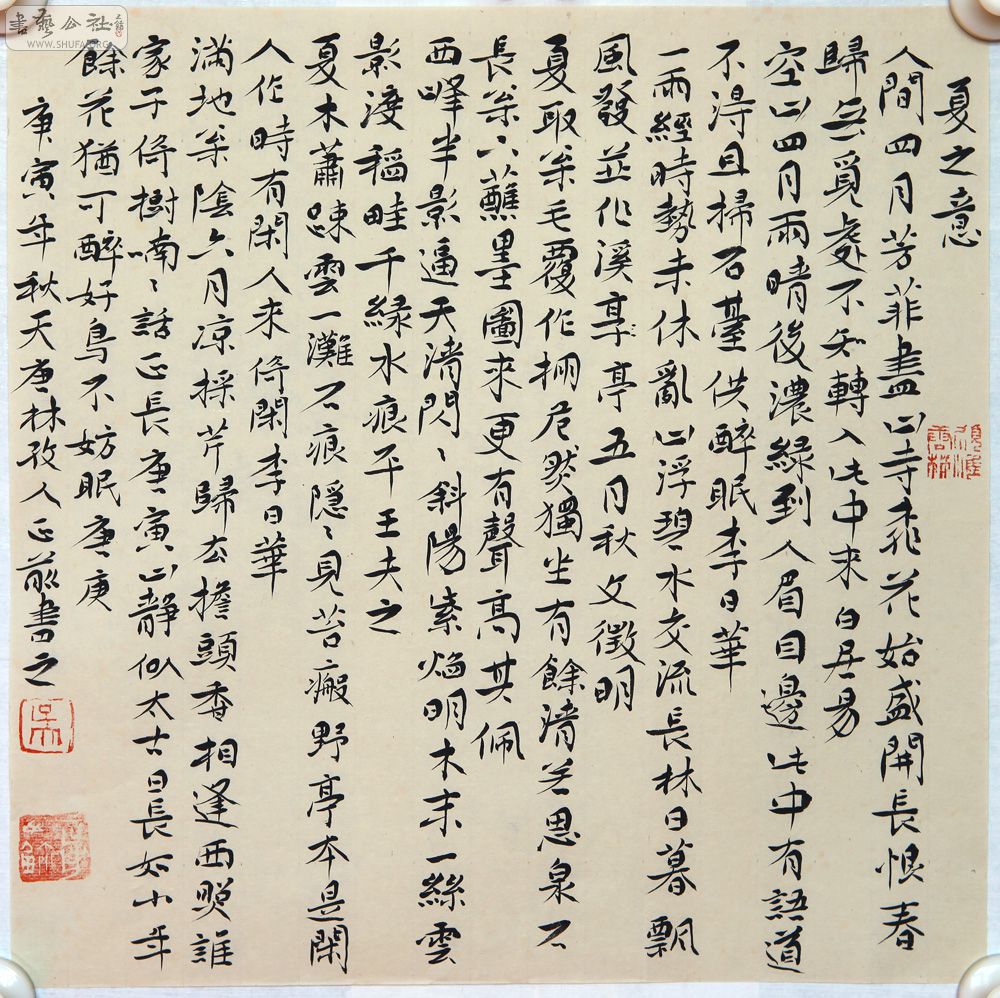 夏之意
人間四月芳菲盡山寺桃花始盛開長恨春
歸無覓處不知轉入此中來白居易
空山四月雨晴後濃綠到人眉目邊此中有語道
不得且掃石臺供醉眠李日華
一雨經時勢未休亂山浮碧水交流長林日暮飄
風發並作溪亭五月秋文徵明
夏取羊毛覆作棚居然獨坐有餘清若思泉石
長羊六蘸墨圖來更有聲高其佩
西峰半影逼天清閃〻斜陽紫焰明木末一絲雲
影渡稻畦千綠水痕平王夫之
夏木蕭疎雲一灘石痕隱〻見苔瘢野亭本是閑
人作時有閑人來倚闌李日華
滿地羊陰六月凉採芹歸去擔頭香相逢西照誰
家子倚樹喃〻話正長唐寅山靜似太古日長如小年
餘花猶可醉好鳥不妨眠唐庚
庚寅年秋天唐林孜人正龍書之
書藝公社
WWW.SHUFA.ORG